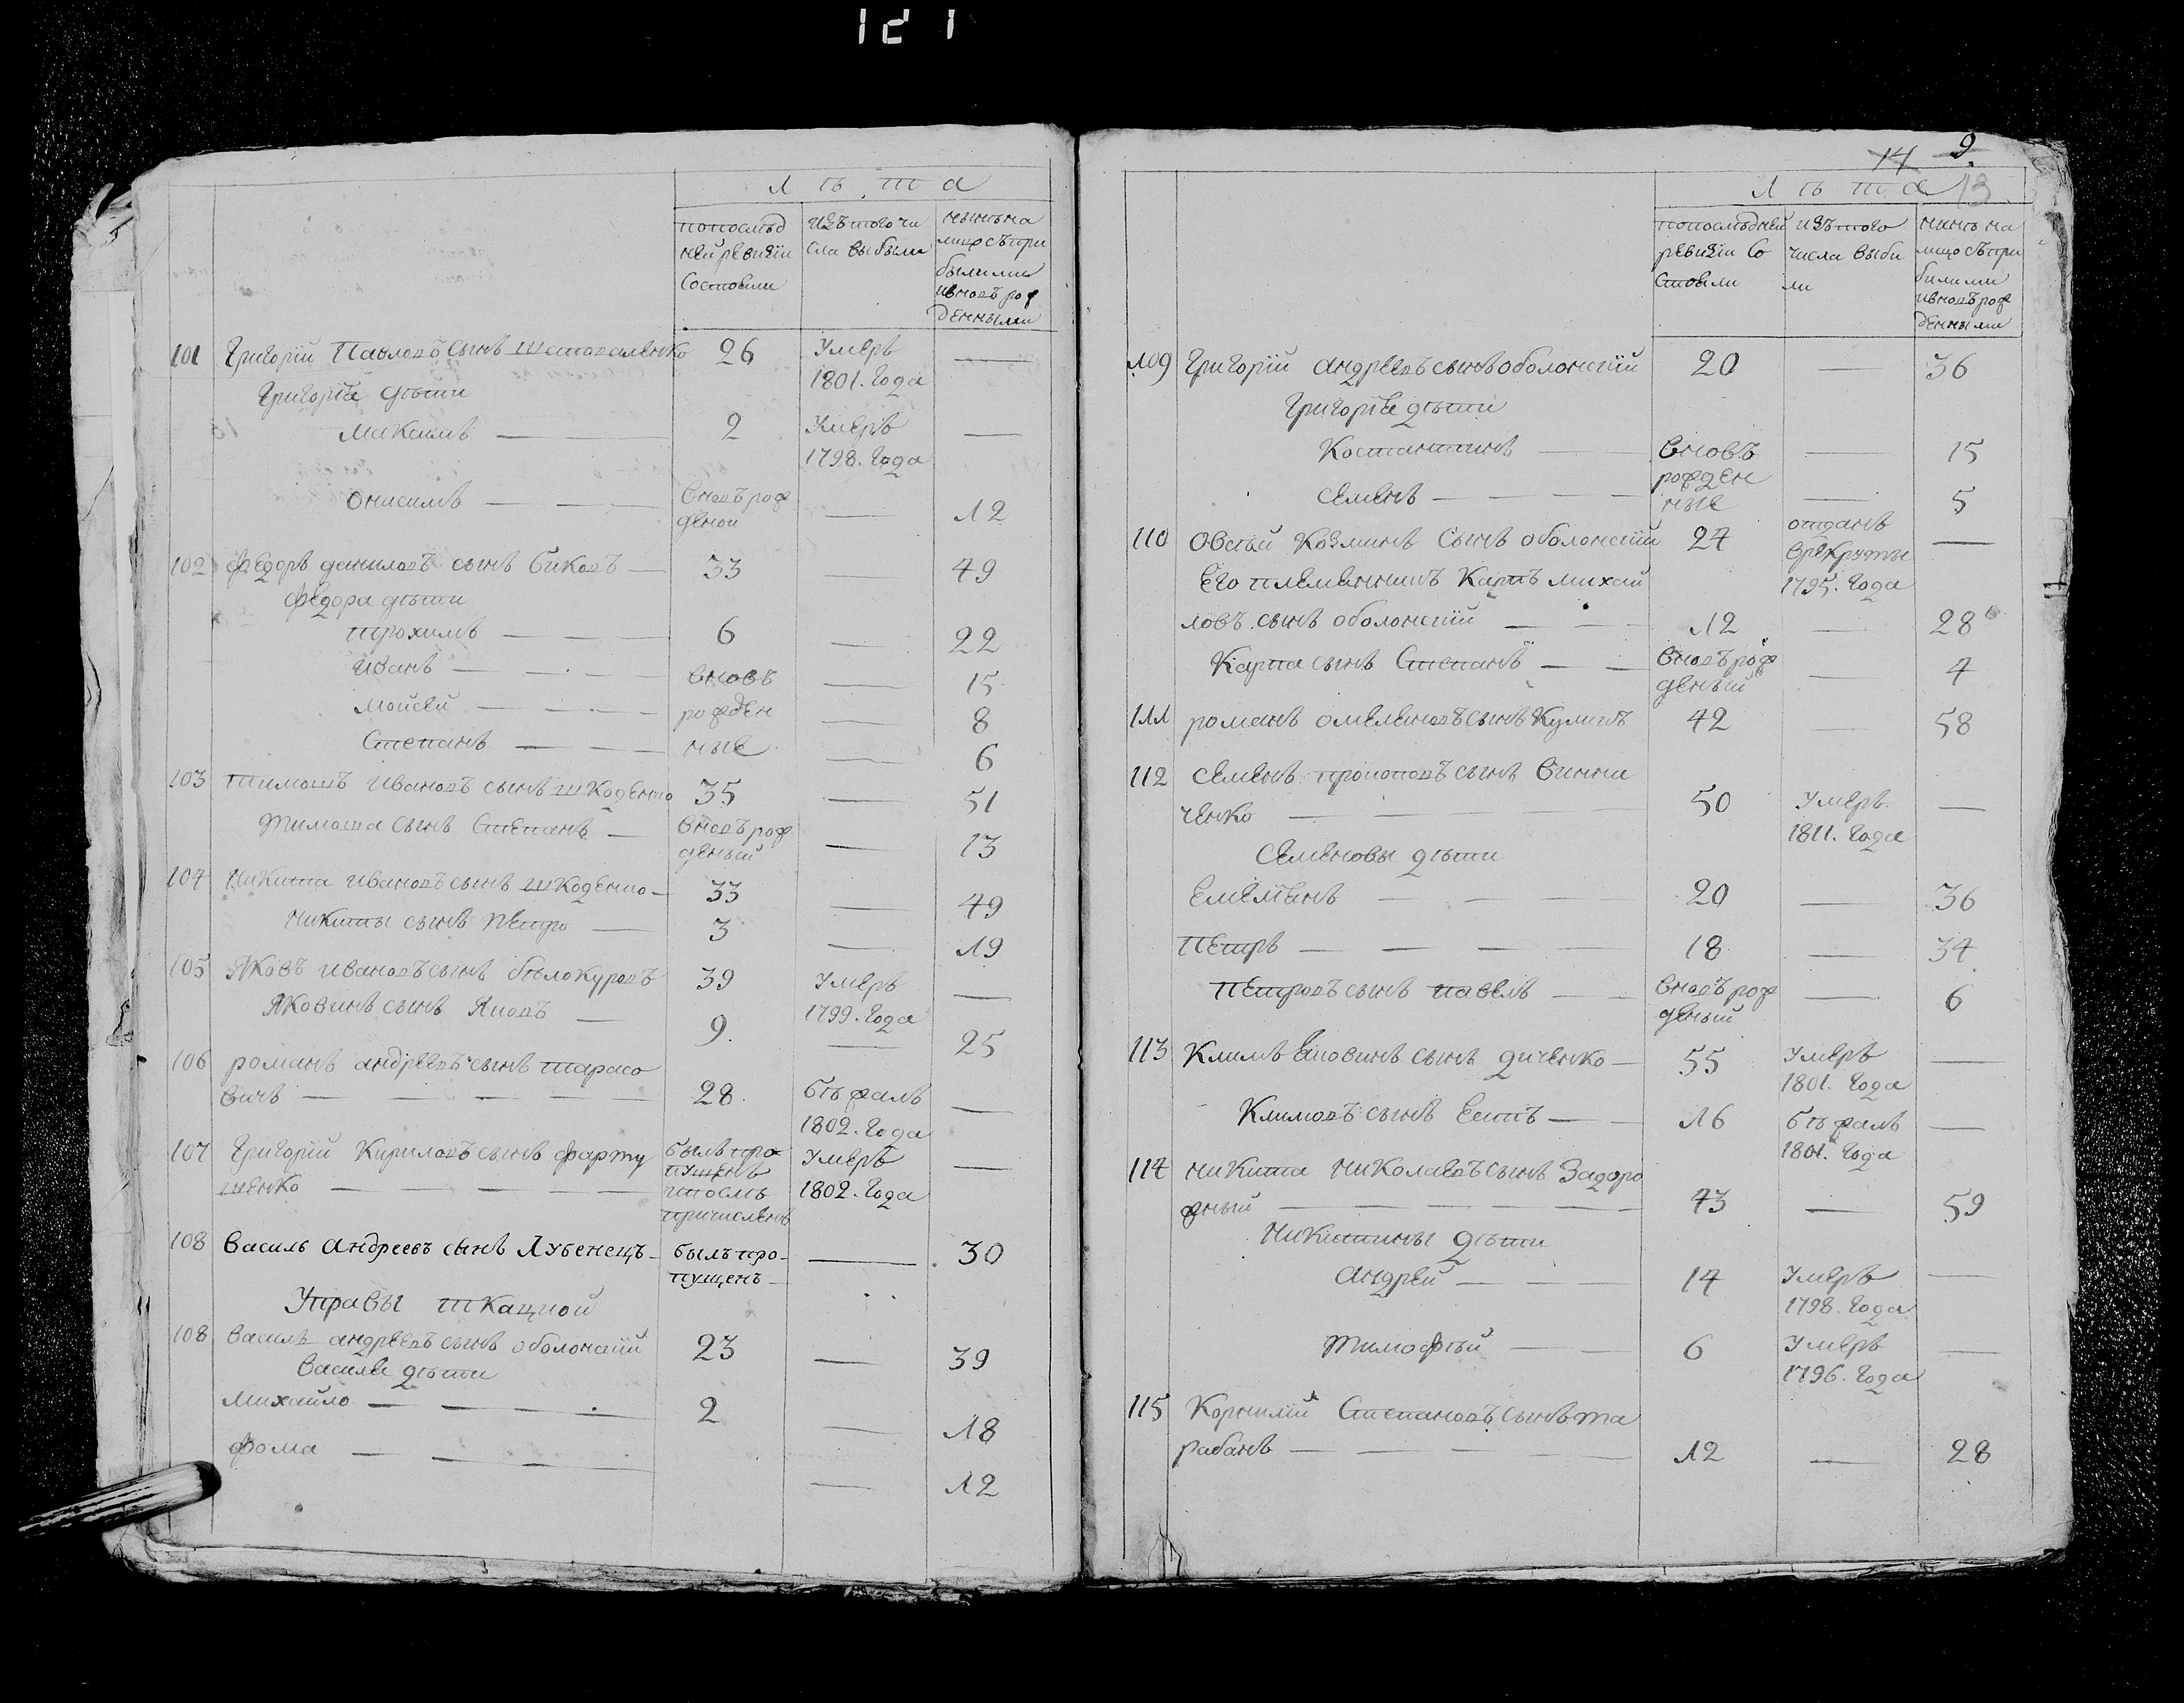 121
Лѣта
попослѣд ней ревизіи состояли
изъ того чи сла выбыли
нынѣ на лицо съ при былими и вновь рож денными
101 Григорій Павловъ сынъ Шаповаленко 26 Умеръ —
1801. Года
Григорія дѣти
Максимъ — 2 Умеръ —
1798. Года
Онисимъ — — вновь рож — 12
деной
102 Федоръ Даниловъ сынъ Биковъ — 33 — 49
Федора дѣти
Трохимъ — — 6 — 22
Иванъ — — — вновь — 15
Мойсей — — — рожден — 8
Степанъ — — ные — 6
103 Тимошъ Ивановъ сынъ Шкоденко 35 — 51
Тимоша сынъ Степанъ — вновь рож — 13
деный
104 Никита Ивановъ сынъ Шкоденко — 33 — 49
Никиты сынъ Петро — 3 — 19
105 Яковъ Ивановъ сынъ Бѣлокуровъ 39 Умеръ —
1799. Года
Яковинъ сынъ Яковъ — 9. — 25
106 Романъ Андреевъ сынъ Тарасо
вичъ — — — — 28. бѣжалъ —
1802. Года
107 Григорій Кириловъ сынъ Фарту былъ про Умеръ —
щенко — — — — пущенъ 1802. Года
и послѣ
причисленъ
108 Василь Андреевъ сынъ Лубенецъ — былъ про — — 30
пущенъ —
Управы ткацкой
108 Василь Андреевъ сынъ Оболонскій 23 — 39
Василя дѣти
Михайло — — — 2 — 18
Фома — — — — 12
14 9.
13
Лѣта
попослѣдней ревизіи со стояли
изъ того числа выби ли
нинѣ на лицо съ при билими и вновь рож денными
109 Григорій Андреевъ сынъ Оболонскій 20 — 36
Григорія дѣти
Костантинъ — вновь — 15
рожден
Семенъ — — — ные — 5
110 Овсѣй Козминъ сынъ Оболонскій 24 отданъ —
врекруты
Его племянникъ Карпъ Михай 1795. Года
ловъ сынъ Оболонскій — — 12 — 28
Карпа сынъ Степанъ — — вновь рож — 4
деный
111 Романъ Омеляновъ сынъ Куличъ 42 — 58
112 Семенъ Прокоповъ сынъ Винни
ченко — — — 50 Умеръ —
1811. Года
Семеновы дѣти
Емелянъ — — — 20 — 36
Петръ — — — — 18 — 34
Петровъ сынъ Павелъ — — вновь рож — 6
деный
113 Климъ Яковинъ сынъ Диченко — 55 Умеръ —
1801. Года
Климовъ сынъ Есипъ — — 16 бѣжалъ —
1801. Года
114 Никита Николаевъ сынъ Задоро
жный — — — — — 43 — 59
Никитины дѣти
Андрей — — — 14 Умеръ —
1798. Года
Тимофѣй — — 6 Умеръ —
1796. Года
115 Корнилій Степановъ сынъ Та
рабанъ — — — — 12 — 28